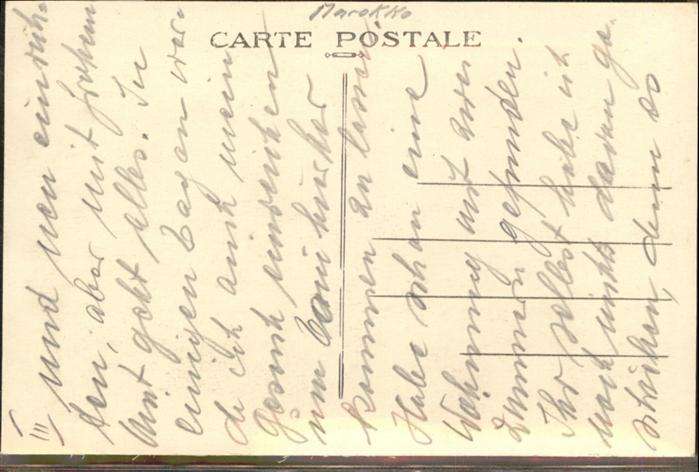 Marokko
CARTE POSTALE
III
und neu einrich-
ten, aber mit frohem
Mut geht alles. In
einigen Tagen wer-
de ich auch mein
Gesuch einreichen
um hierher
kommen zu lassen
Habe schon eine
Wohnung mit zwei
Zimmern gefunden.
Ihr selbst habe ich
noch nichts davon ge-
schrieben, denn so